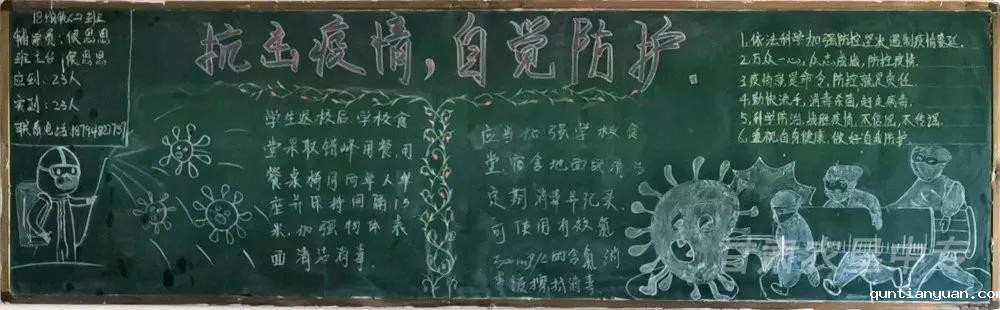 抗击疫情,自觉防护
辅导员:侯思思
班主任:侯思思
应到:23人
实到:23人
联系电话
学生返校后,学校食
堂采取错峰用餐,用
餐桌椅同向单人单
座并保持间隔1.5
米,加强物体表
面清洁消毒
应当加强学校食
堂宿舍地面
定期消毒并记录,
可使用有效氯
的含氯消
擦拭消毒
1.依法科学加强防控,坚决遏制疫情蔓延.
2.万众一心,众志成城,防控疫情.
3.疫情就是命令,防控就是责任.
4.勤快洗手,消毒杀菌,赶走病毒.
5.科学防治,战胜疫情,不信谣,不传谣.
6.重视自身健康,做好自我防护
quntianyuan.com